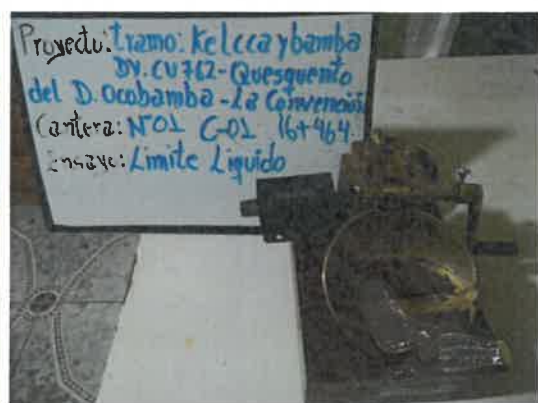 Proyecto: tramo: Kelccaybamba
DV. CU762-Quesquento
del D. Ocobamba-La Convención
Cantera: N°01 C-01 16+464.
Ensaye: Limite Liquido